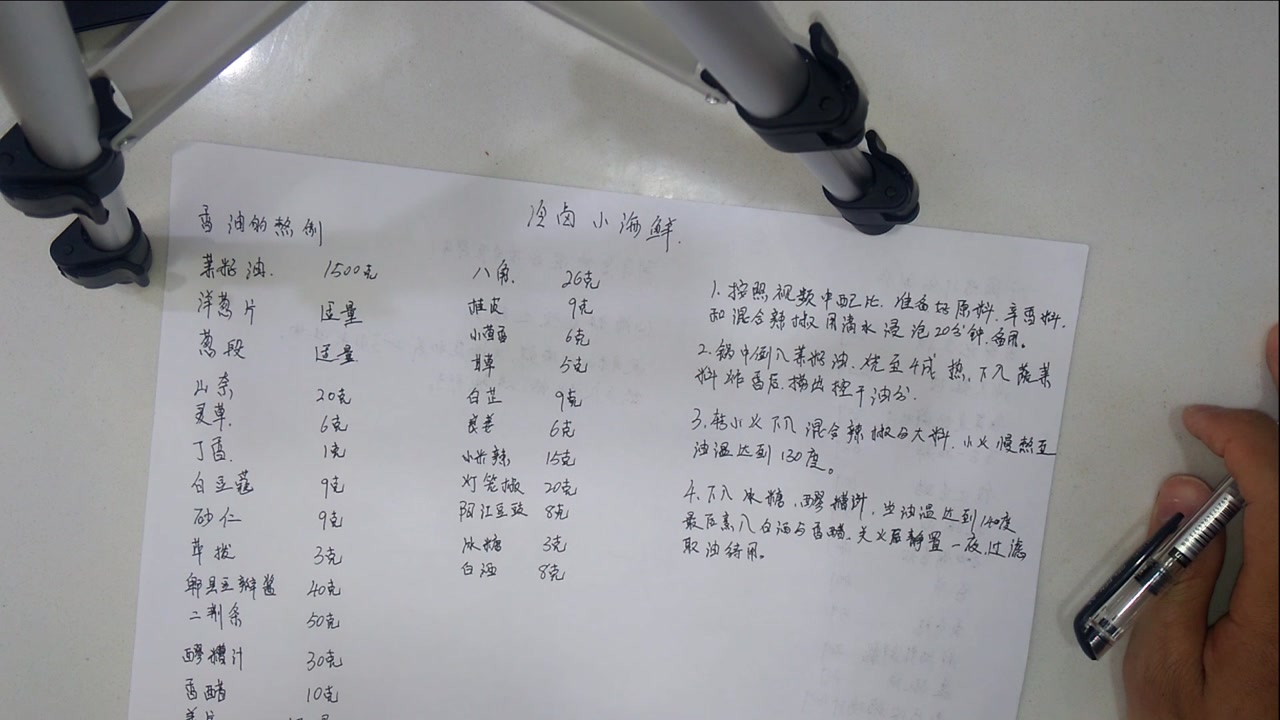 冷卤小海鲜.
香油的熬制
菜籽油. 1500克
洋葱片 适量
葱段 适量
山奈 20克
灵草. 6克
丁香. 1克
白豆蔻 9克
砂仁 9克
荜拨 3克
郫县豆瓣酱 40克
二荆条 50克
醪糟汁 30克
香醋 10克
八角. 26克
桂皮 9克
小茴香 6克
草 5克
白芷 9克
良姜 6克
小米辣 15克
灯笼椒 20克
阳江豆豉 8克
冰糖 3克
白酒 8克
1. 按照视频中配比. 准备好原料. 辛香料.
和混合辣椒用清水浸泡20分钟,备用。
2. 锅中倒入菜籽油. 烧至4成热, 下入蔬菜
料炸香后, 捞出控干油分.
3. 转小火下入混合辣椒与大料. 小火慢熬至
油温达到130度。
4. 下入冰糖, 醪糟汁, 当油温达到140度
最后烹入白酒与香醋. 关火后静置一夜, 过滤
取油待用。